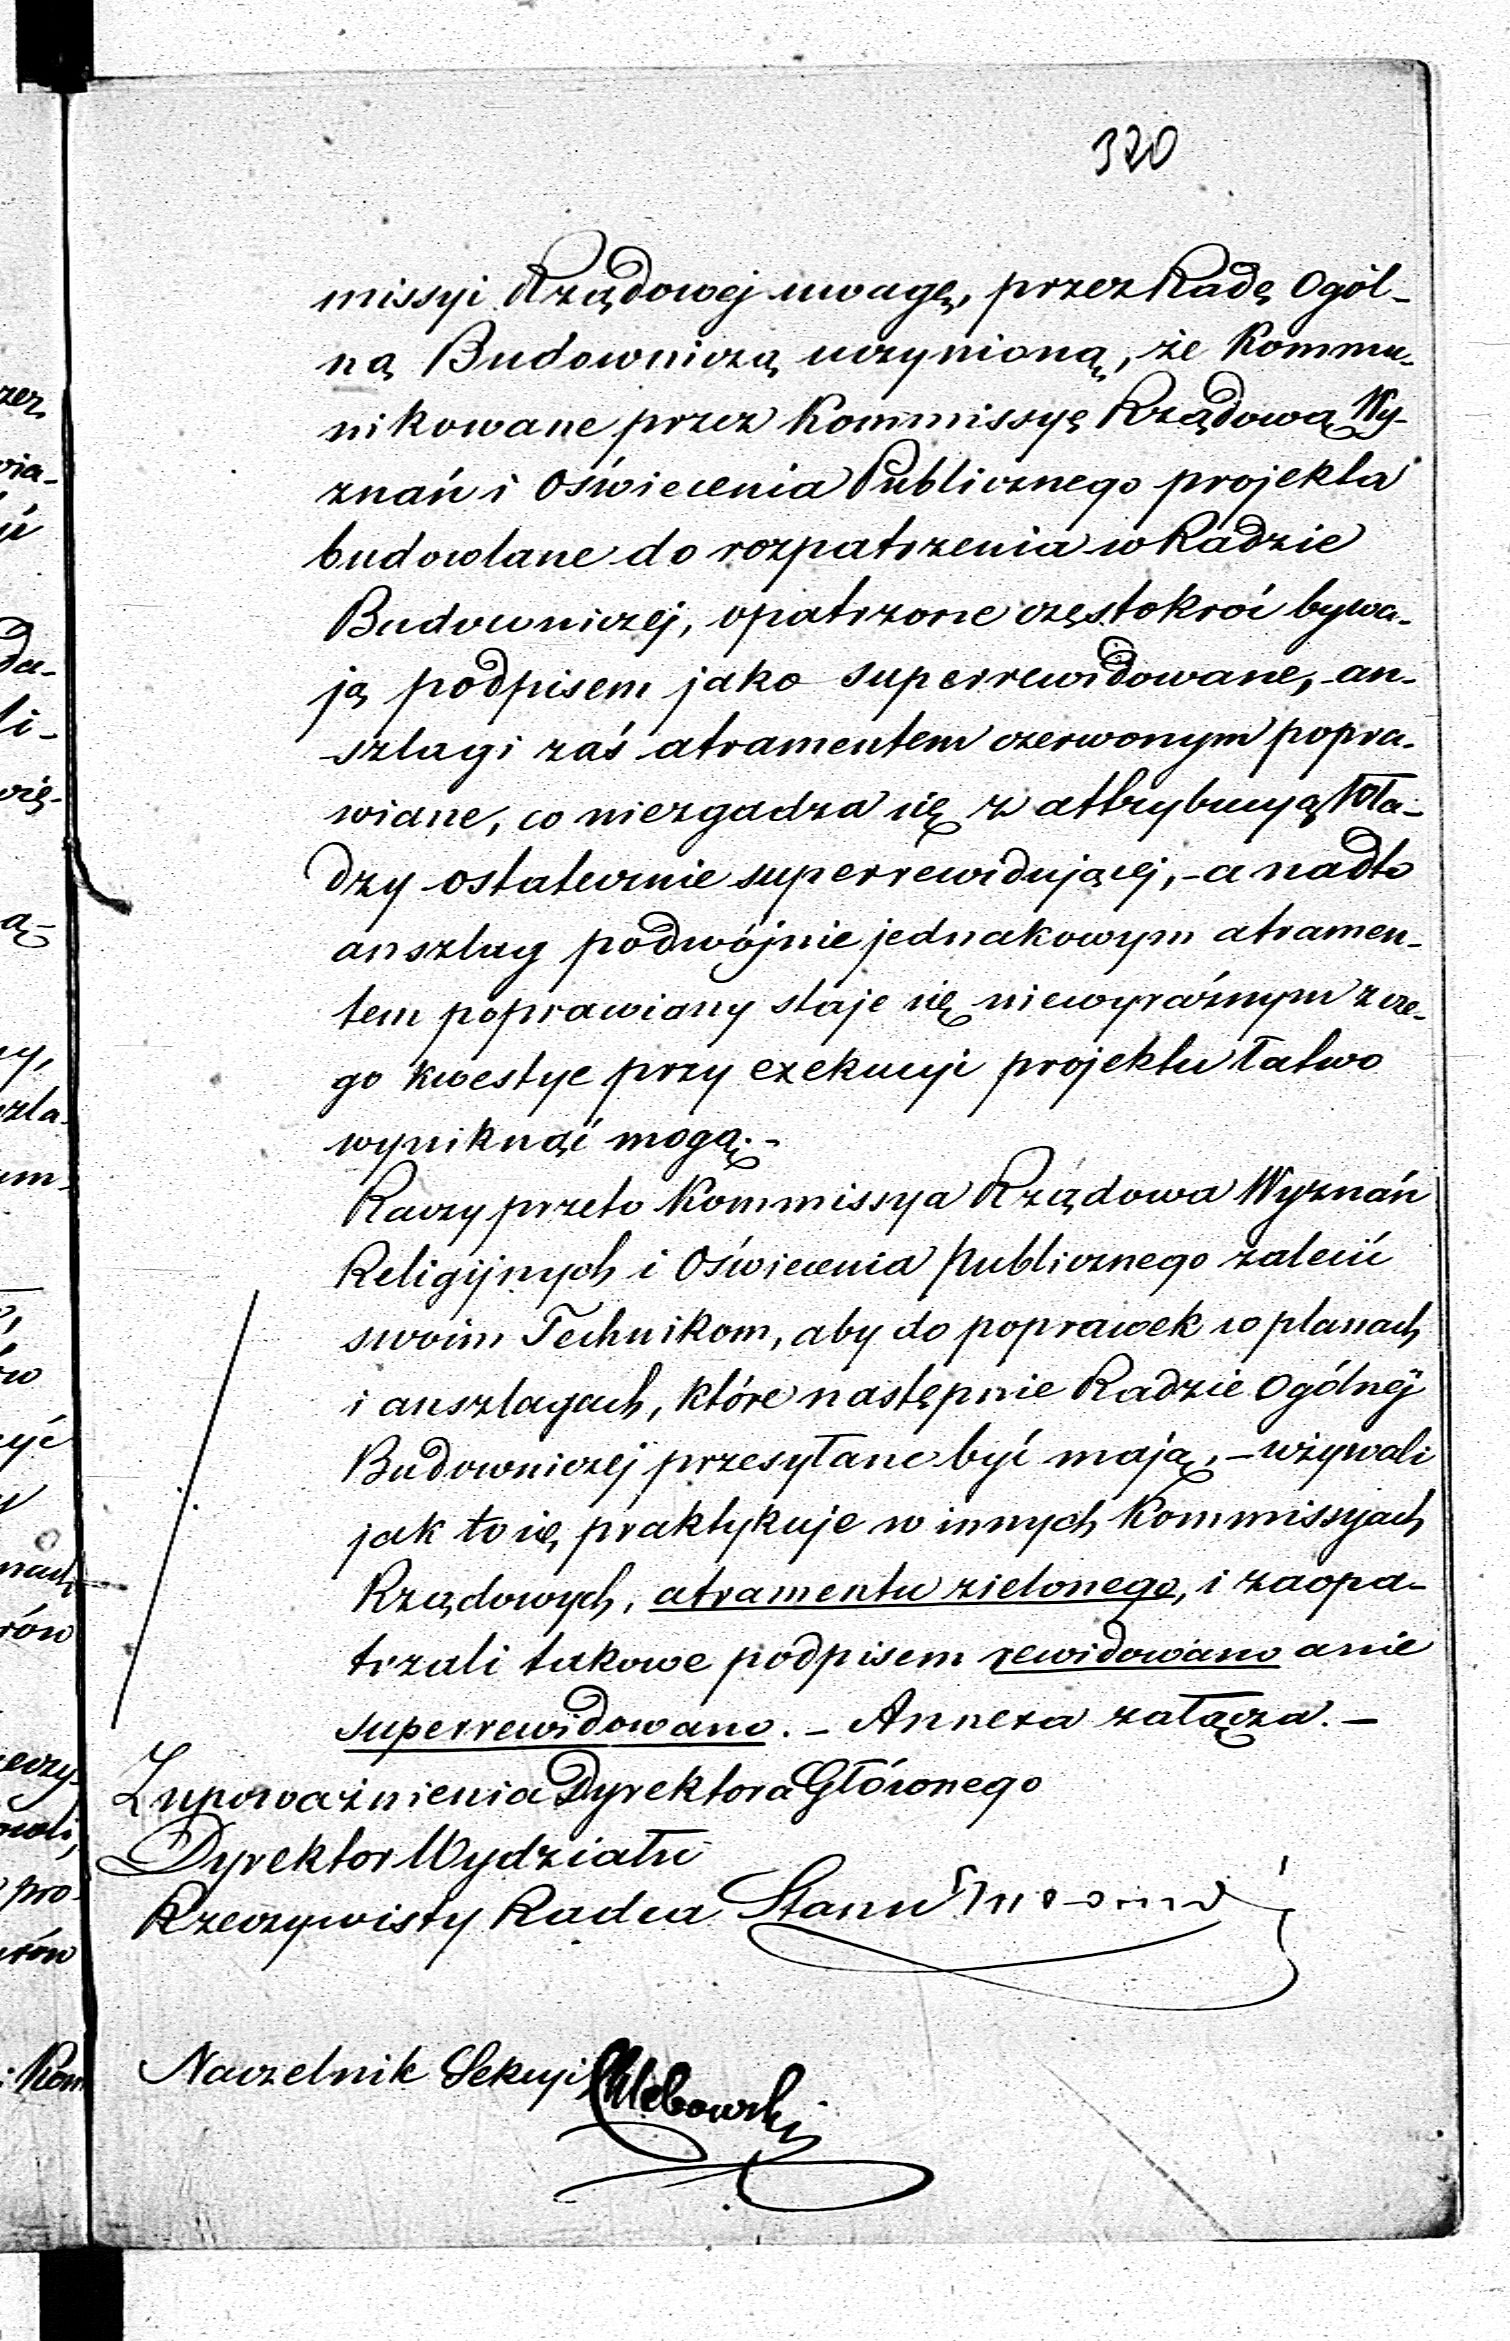 320
missyi Rządowej uwagę, przez Radę Ogól-
ną Budowniczą uczynioną, że kommu-
nikowane przez Kommissyę Rządową Wy-
znań i Oświecenia Publicznego projekta
budowlane do rozpatrzenia w Radzie
Budowniczej, opatrzone częstokroć bywa-
ją podpisem jako superrewidowane, an-
szlagi zaś atramentem czerwonym popra-
wiane, co niezgadza się z attrybucyą Wła-
dzy ostatecznie superrewidującej, - a nadto
anszlag podwójnie jednakowym atramen-
tem poprawiany staje się niewyraźnym z cze-
go kwestye przy exekucyi projektu łatwo
wyniknąć mogą. -
Raczy przeto Kommissya Rządowa Wyznań
Religijnych i Oświecenia Publicznego zalecić
swoim Technikom, aby do poprawek w planach
i anszlagach, które następnie Radzie Ogólnej
Budowniczej przesyłane być mają, - używali
jak to się praktykuje w innych Kommissyach
Rządowych, atramentu zielonego, i zaopa-
trzali takowe podpisem rewidowano a nie
superrewidowano. - Annexa załącza. -
Z upoważnienia Dyrektora Głównego
Dyrektor Wydziału
Rzeczywisty Radca Stanu
Naczelnik Sekcyi Chlebowski